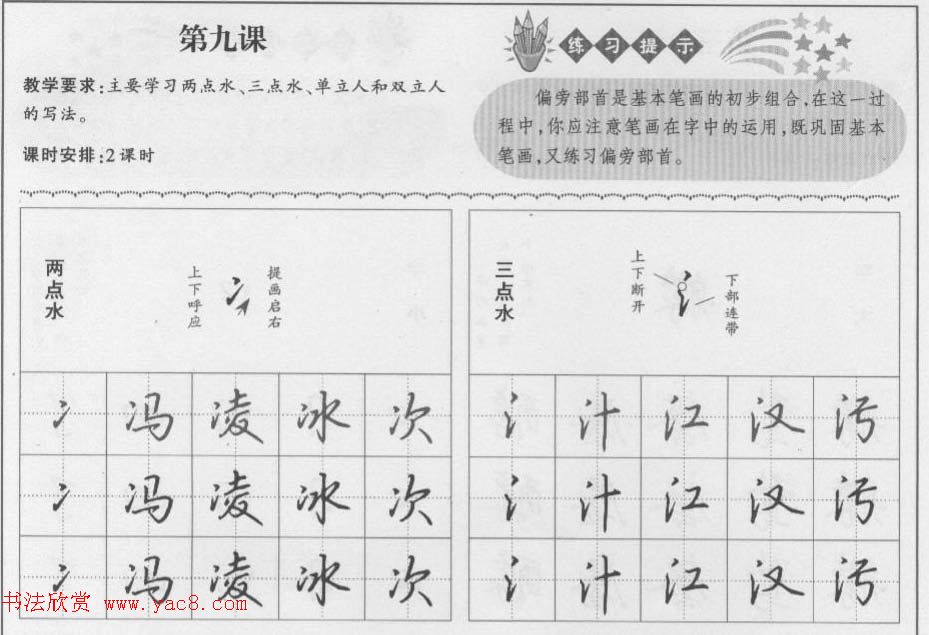 第九课
教学要求:主要学习两点水、三点水、单立人和双立人
的写法。
课时安排:2课时
练习提示
偏旁部首是基本笔画的初步组合,在这一过
程中,你应注意笔画在字中的运用,既巩固基本
笔画,又练习偏旁部首。
两点水
上下呼应
冫
提画启右
冫 冯 凌 冰 次
冫 冯 凌 冰 次
冫 冯 凌 冰 次
三点水
上下断开
氵
下部连带
氵 汁 江 汉 污
氵 汁 江 汉 污
氵 汁 江 汉 污
书法欣赏 www.yac8.com